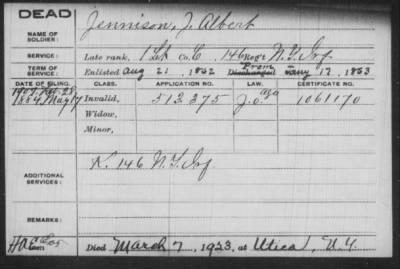 DEAD
NAME OF SOLDIER:
Jennison, J. Albert
SERVICE:
Late rank, 1 Lt Co. C, 146 Reg't N.Y. Inf
TERM OF SERVICE:
Enlisted Aug 21, 1862 Discharged From Jany 17, 1863
DATE OF FILING. CLASS. APPLICATION NO. LAW. CERTIFICATE NO.
1884 May 17 Invalid, 513.375 1061170
Widow,
Minor,
ADDITIONAL SERVICES:
K. 146 N.Y. Inf.
REMARKS:
Died March 7, 1923, at Utica, N.Y.